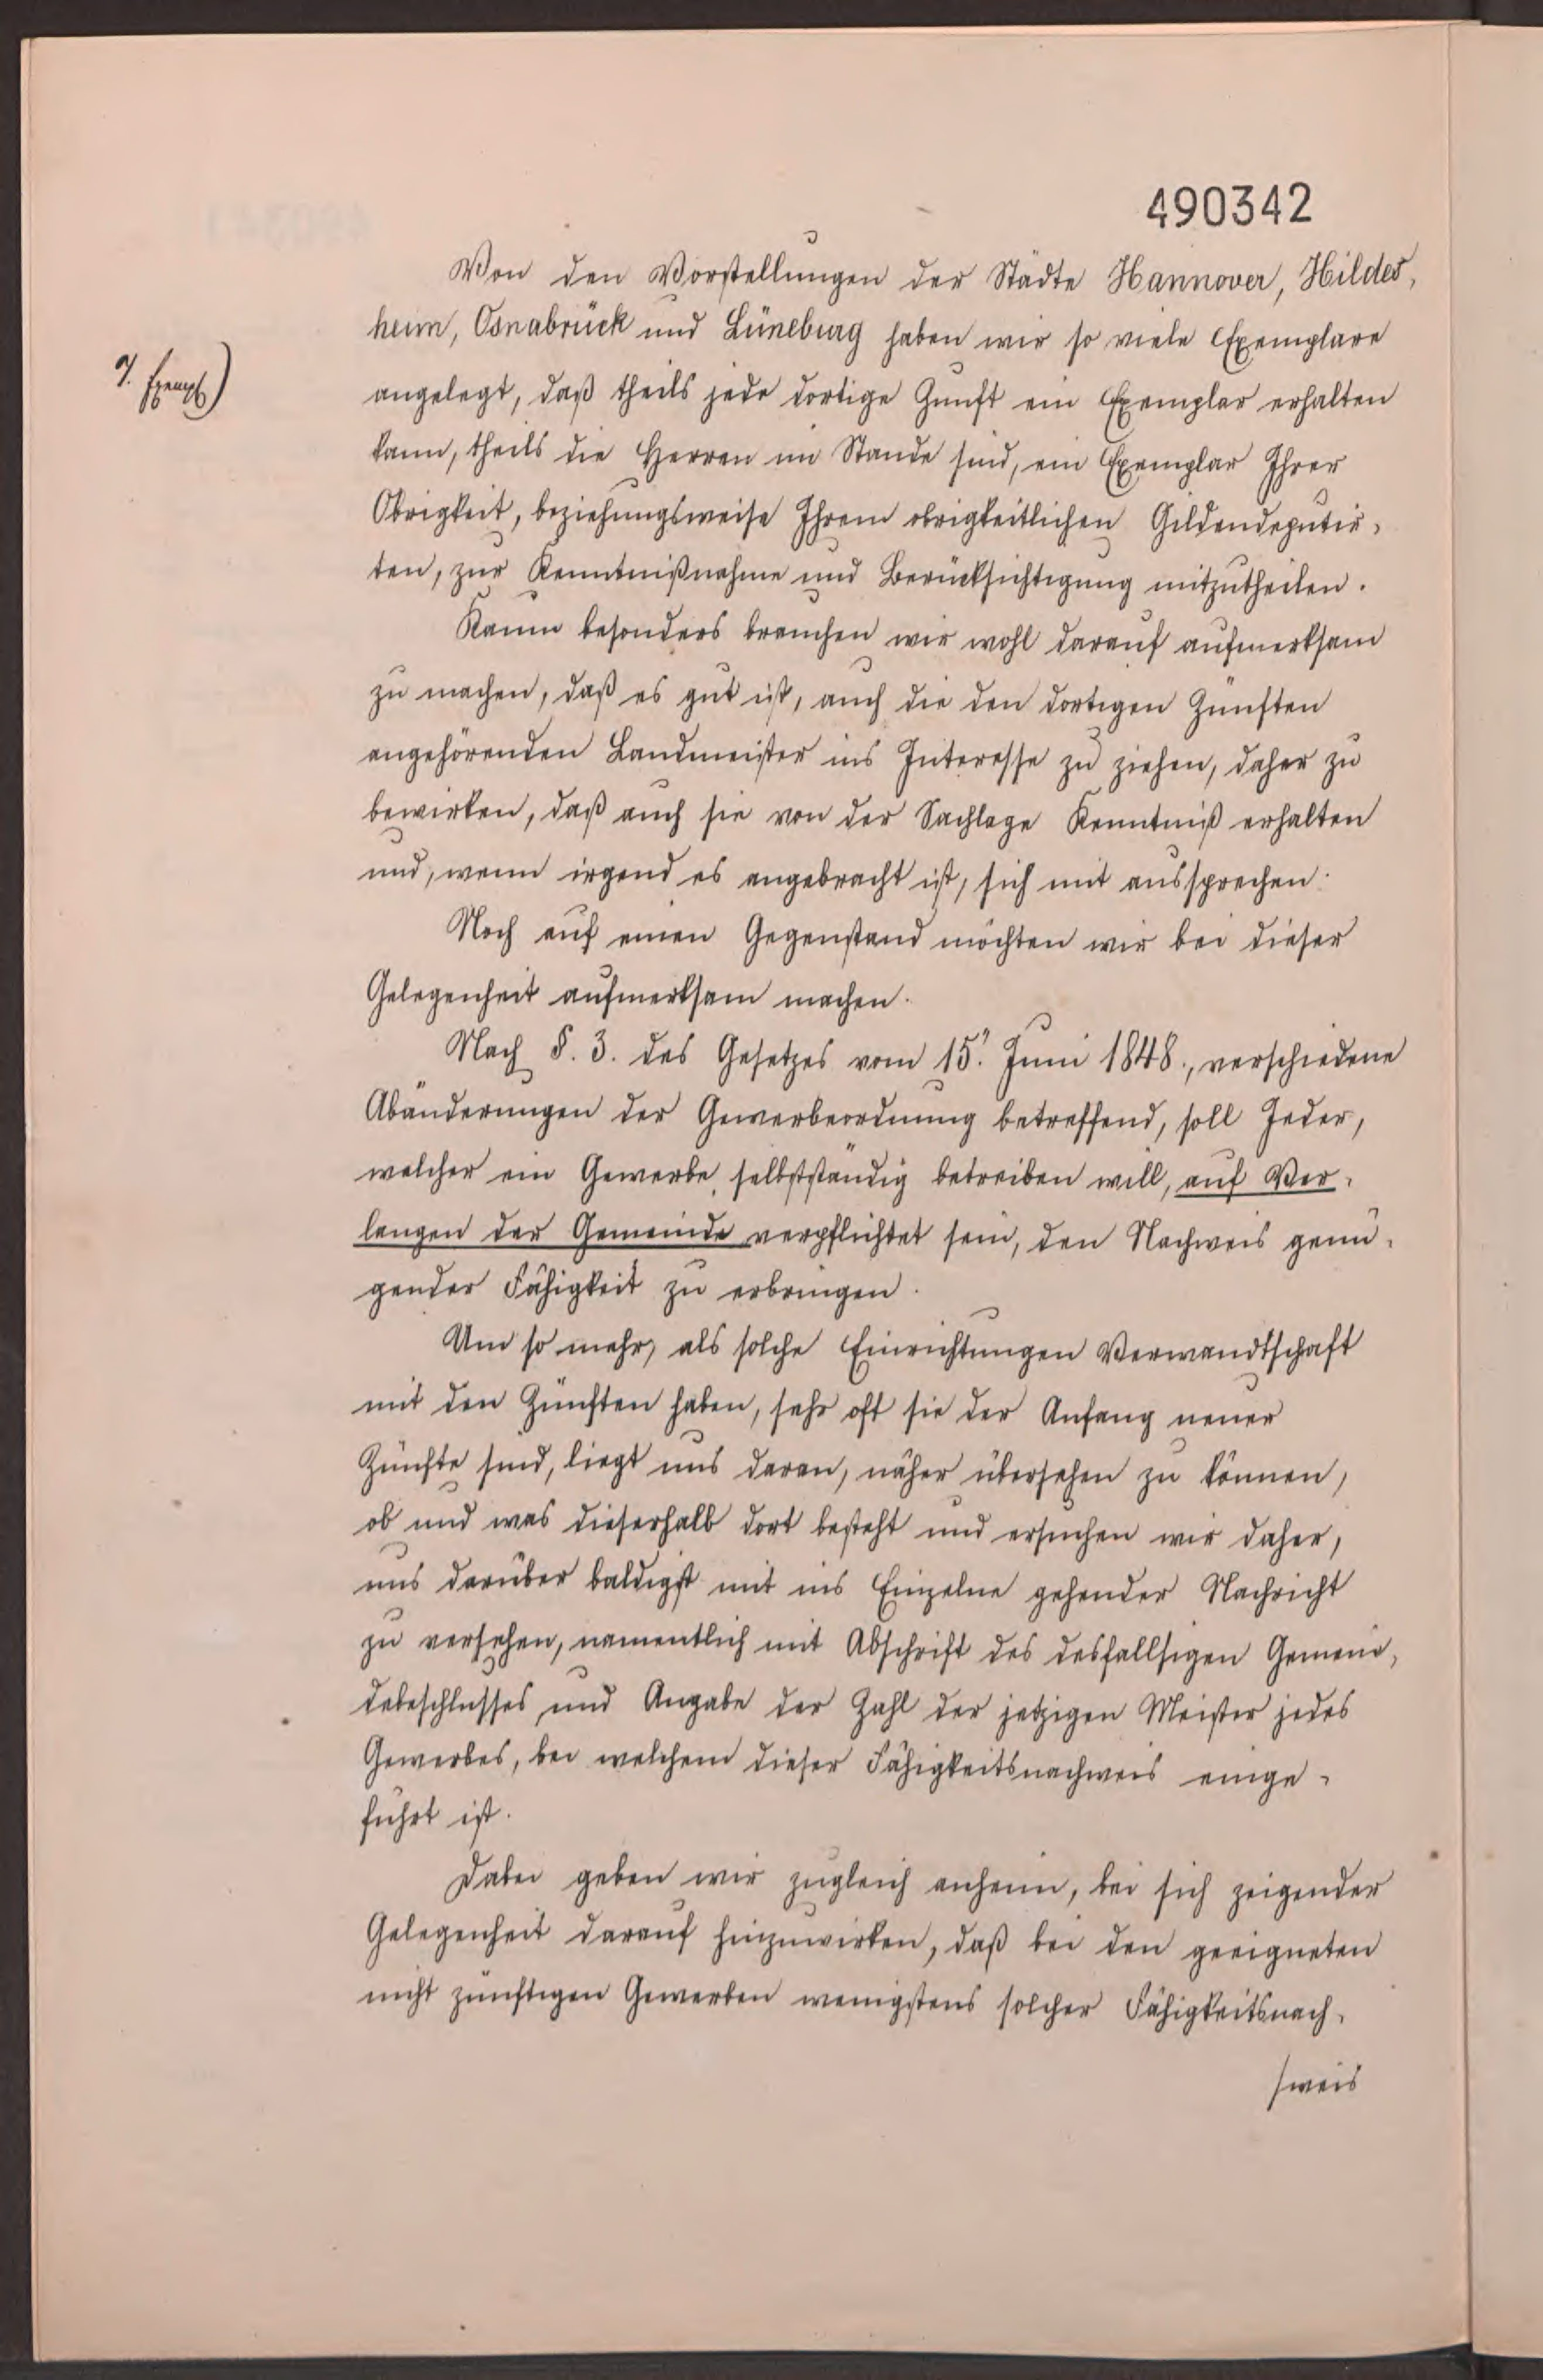 490342
Von den Vorstellungen der Städte Hannover, Hildes,
heim, Osnabrück und Lüneburg haben wir so viele Exemplare
7. Exempl)
angelegt, daß theils jede dortige Zunft ein Exemplar erhalten
kann, theils die Herren im Stande sind, ein Exemplar Ihrer
Obrigkeit, beziehungsweise Ihrem obrigkeitlichen Gildendeputir,
ten, zur Kenntnißnahme und Berücksichtigung mitzutheilen.
Kaum besonders brauchen wir wohl darauf aufmerksam
zu machen, daß es gut ist, auch die den dortigen Zünften
angehörenden Landmeister ins Interesse zu ziehen, daher zu
bewirken, daß auch sie von der Sachlage Kenntniß erhalten
und, wenn irgend es angebracht ist, sich mit aussprechen.
Noch auf einen Gegenstand möchten wir bei dieser
Gelegenheit aufmerksam machen.
Nach §. 3. des Gesetzes vom 15. Juni 1848., verschiedene
Abänderungen der Gewerbeordnung betreffend, soll Jeder,
welcher ein Gewerbe selbstständig betreiben will, auf Ver,
langen der Gemeinde verpflichtet sein, den Nachweis genü,
gender Fähigkeit zu erbringen.
Um so mehr, als solche Einrichtungen Verwandtschaft
mit den Zünften haben, sehr oft sie der Anfang neuer
Zünfte sind, liegt uns daran, näher übersehen zu können,
ob und was dieserhalb dort besteht und ersuchen wir daher,
uns darüber baldigst mit ins Einzelne gehender Nachricht
zu versehen, namentlich mit Abschrift des desfallsigen Gemein,
debeschlusses und Angabe der Zahl der jetzigen Meister jedes
Gewerbes, bei welchem dieser Fähigkeitsnachweis einge,
führt ist.
Dabei geben wir zugleich anheim, bei sich zeigender
Gelegenheit darauf hinzuwirken, daß bei den geeigneten
nicht zünftigen Gewerben wenigstens solcher Fähigkeitsnach,
/weis